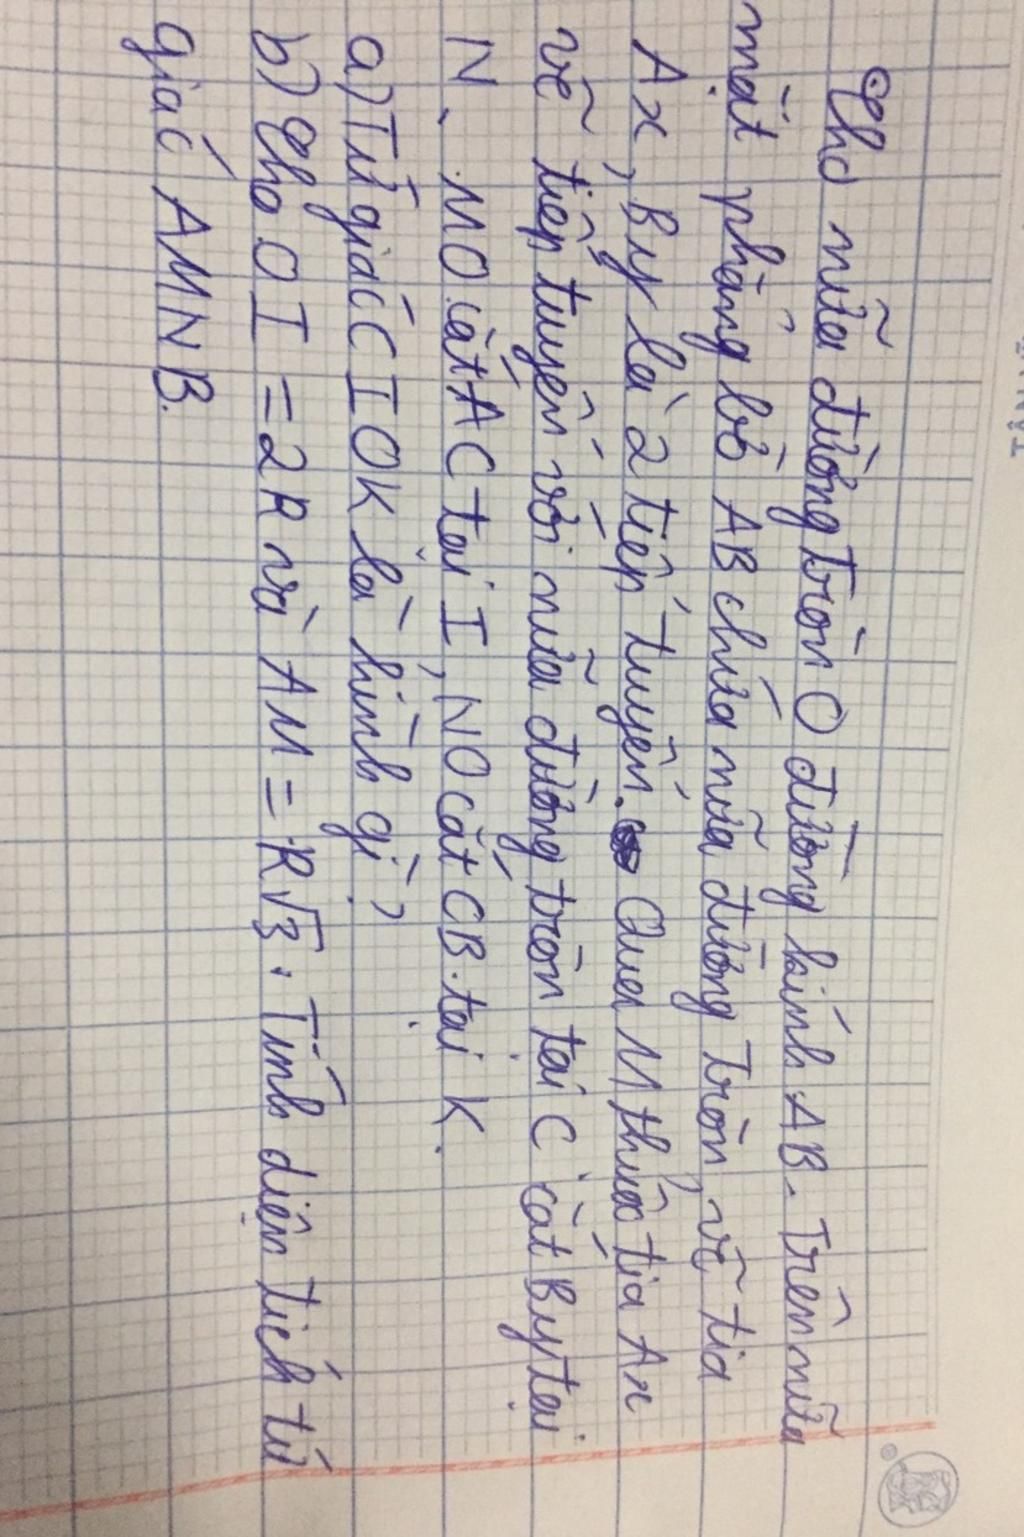 Cho nửa đường tròn O đường kính AB. Trên nửa
mặt phẳng bờ AB chứa nửa đường tròn, vẽ tia
Ax, By là 2 tiếp tuyến. Qua M thuộc tia Ax
vẽ tiếp tuyến với nửa đường tròn tại C cắt By tại
N. MO cắt AC tại I, NO cắt CB tại K.
a) Tứ giác CIOK là hình gì?
b) Cho OI = 2R và AM = R√3. Tính diện tích tứ
giác AMNB.